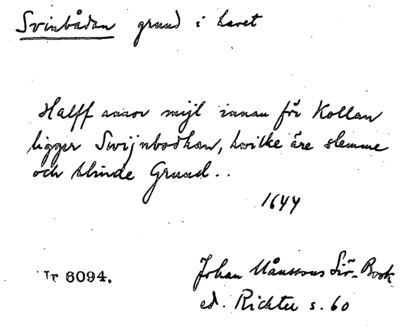 Svinbådan grund i havet
Halff annor mijl innan för Kollan
ligger Swijnbodhan, hwilke äre slemme
och blinde Grund..
1644
Nr 6094.
Johan Månssons Siö-Book
ed. Richter s. 60